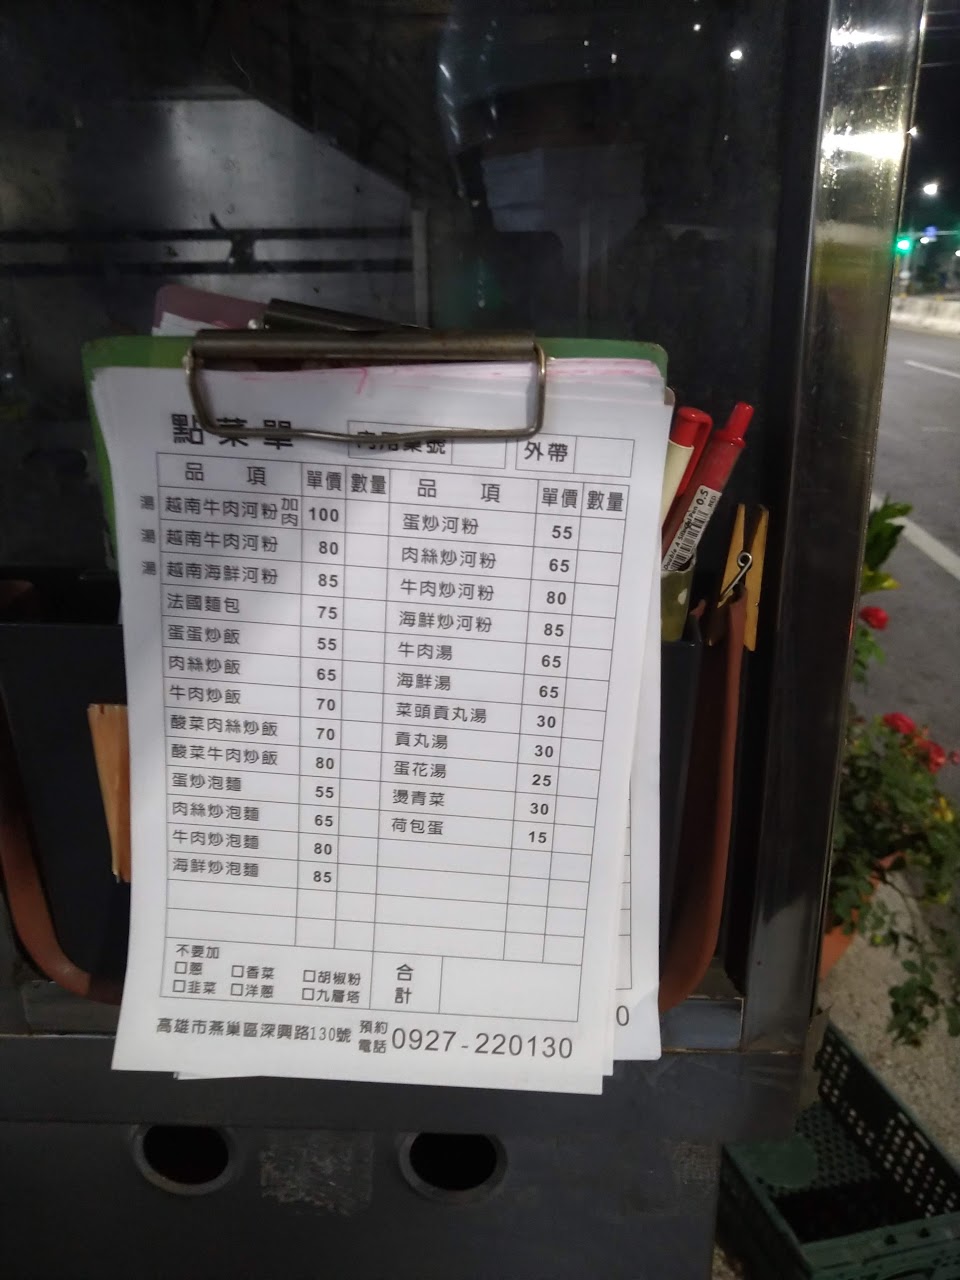 點菜單
內用桌號 外帶
品項 單價 數量 品項 單價 數量
湯 越南牛肉河粉加肉 100 蛋炒河粉 55
湯 越南牛肉河粉 80 肉絲炒河粉 65
湯 越南海鮮河粉 85 牛肉炒河粉 80
法國麵包 75 海鮮炒河粉 85
蛋蛋炒飯 55 牛肉湯 65
肉絲炒飯 65 海鮮湯 65
牛肉炒飯 70 菜頭貢丸湯 30
酸菜肉絲炒飯 70 貢丸湯 30
酸菜牛肉炒飯 80 蛋花湯 25
蛋炒泡麵 55 燙青菜 30
肉絲炒泡麵 65 荷包蛋 15
牛肉炒泡麵 80
海鮮炒泡麵 85
不要加
□蔥 □香菜 □胡椒粉
□韭菜 □洋蔥 □九層塔
合計
高雄市燕巢區深興路130號 預約電話 0927-220130
0
0.5
RED